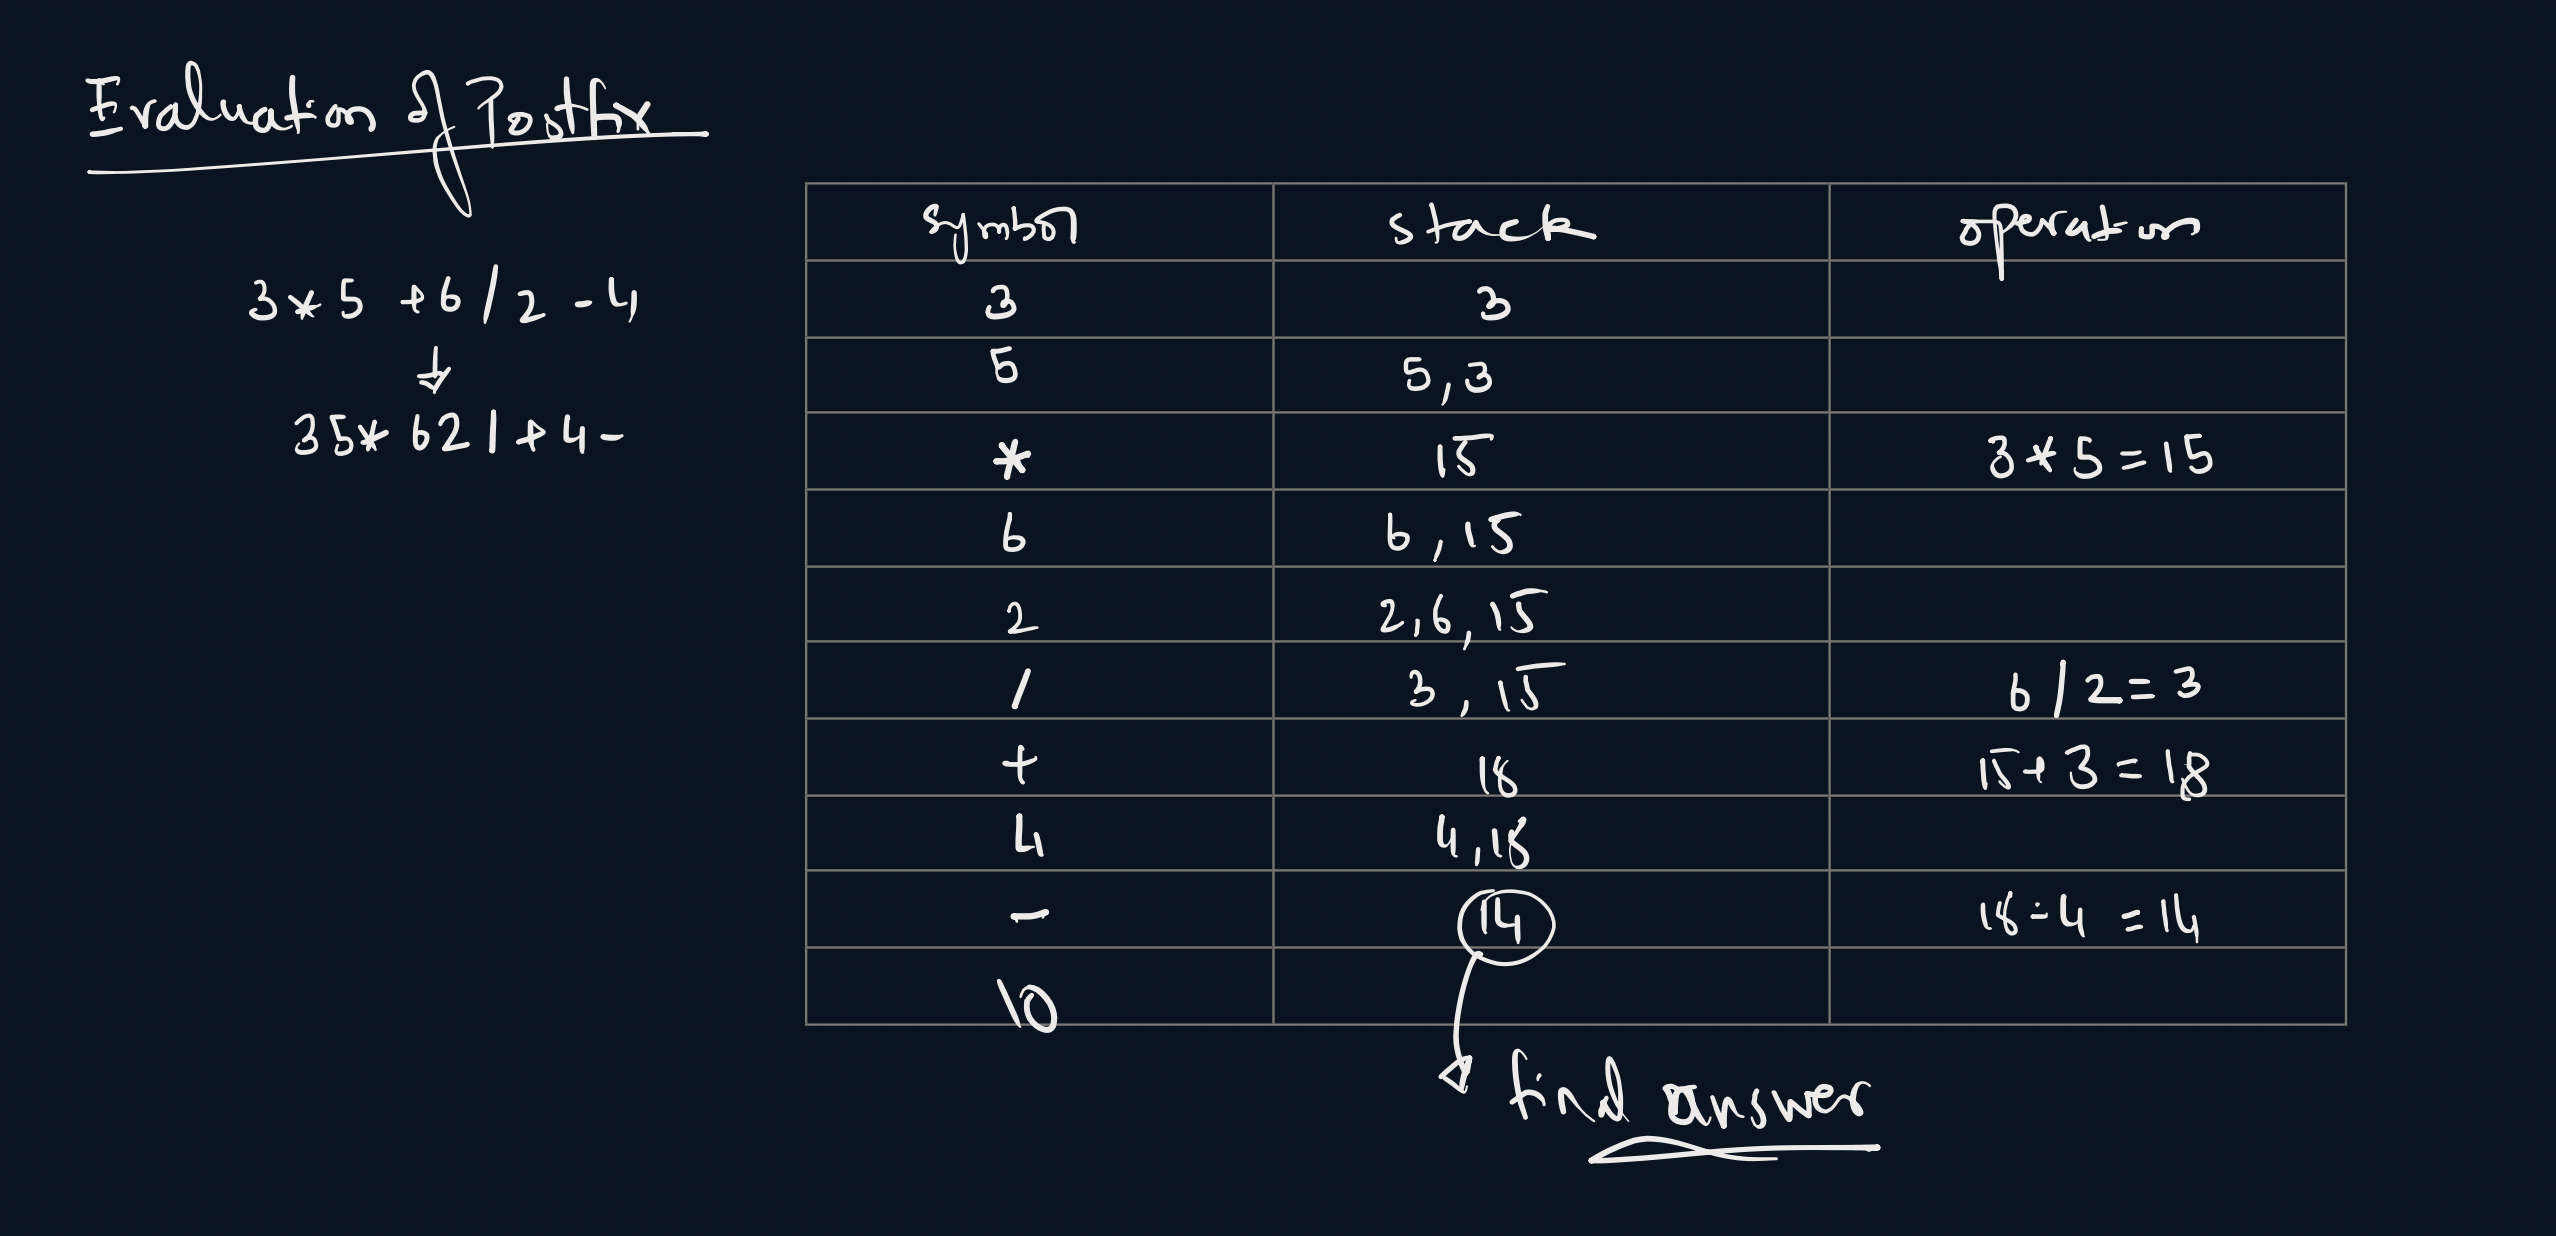 Evaluation of Postfix
3 * 5 + 6 / 2 - 4
35* 62 / + 4 -
symbol stack operation
3 3
5 5,3
* 15 3 * 5 = 15
6 6,15
2 2,6,15
/ 3,15 6 / 2 = 3
+ 18 15 + 3 = 18
4 4,18
- 14 18 - 4 = 14
\0
find answer